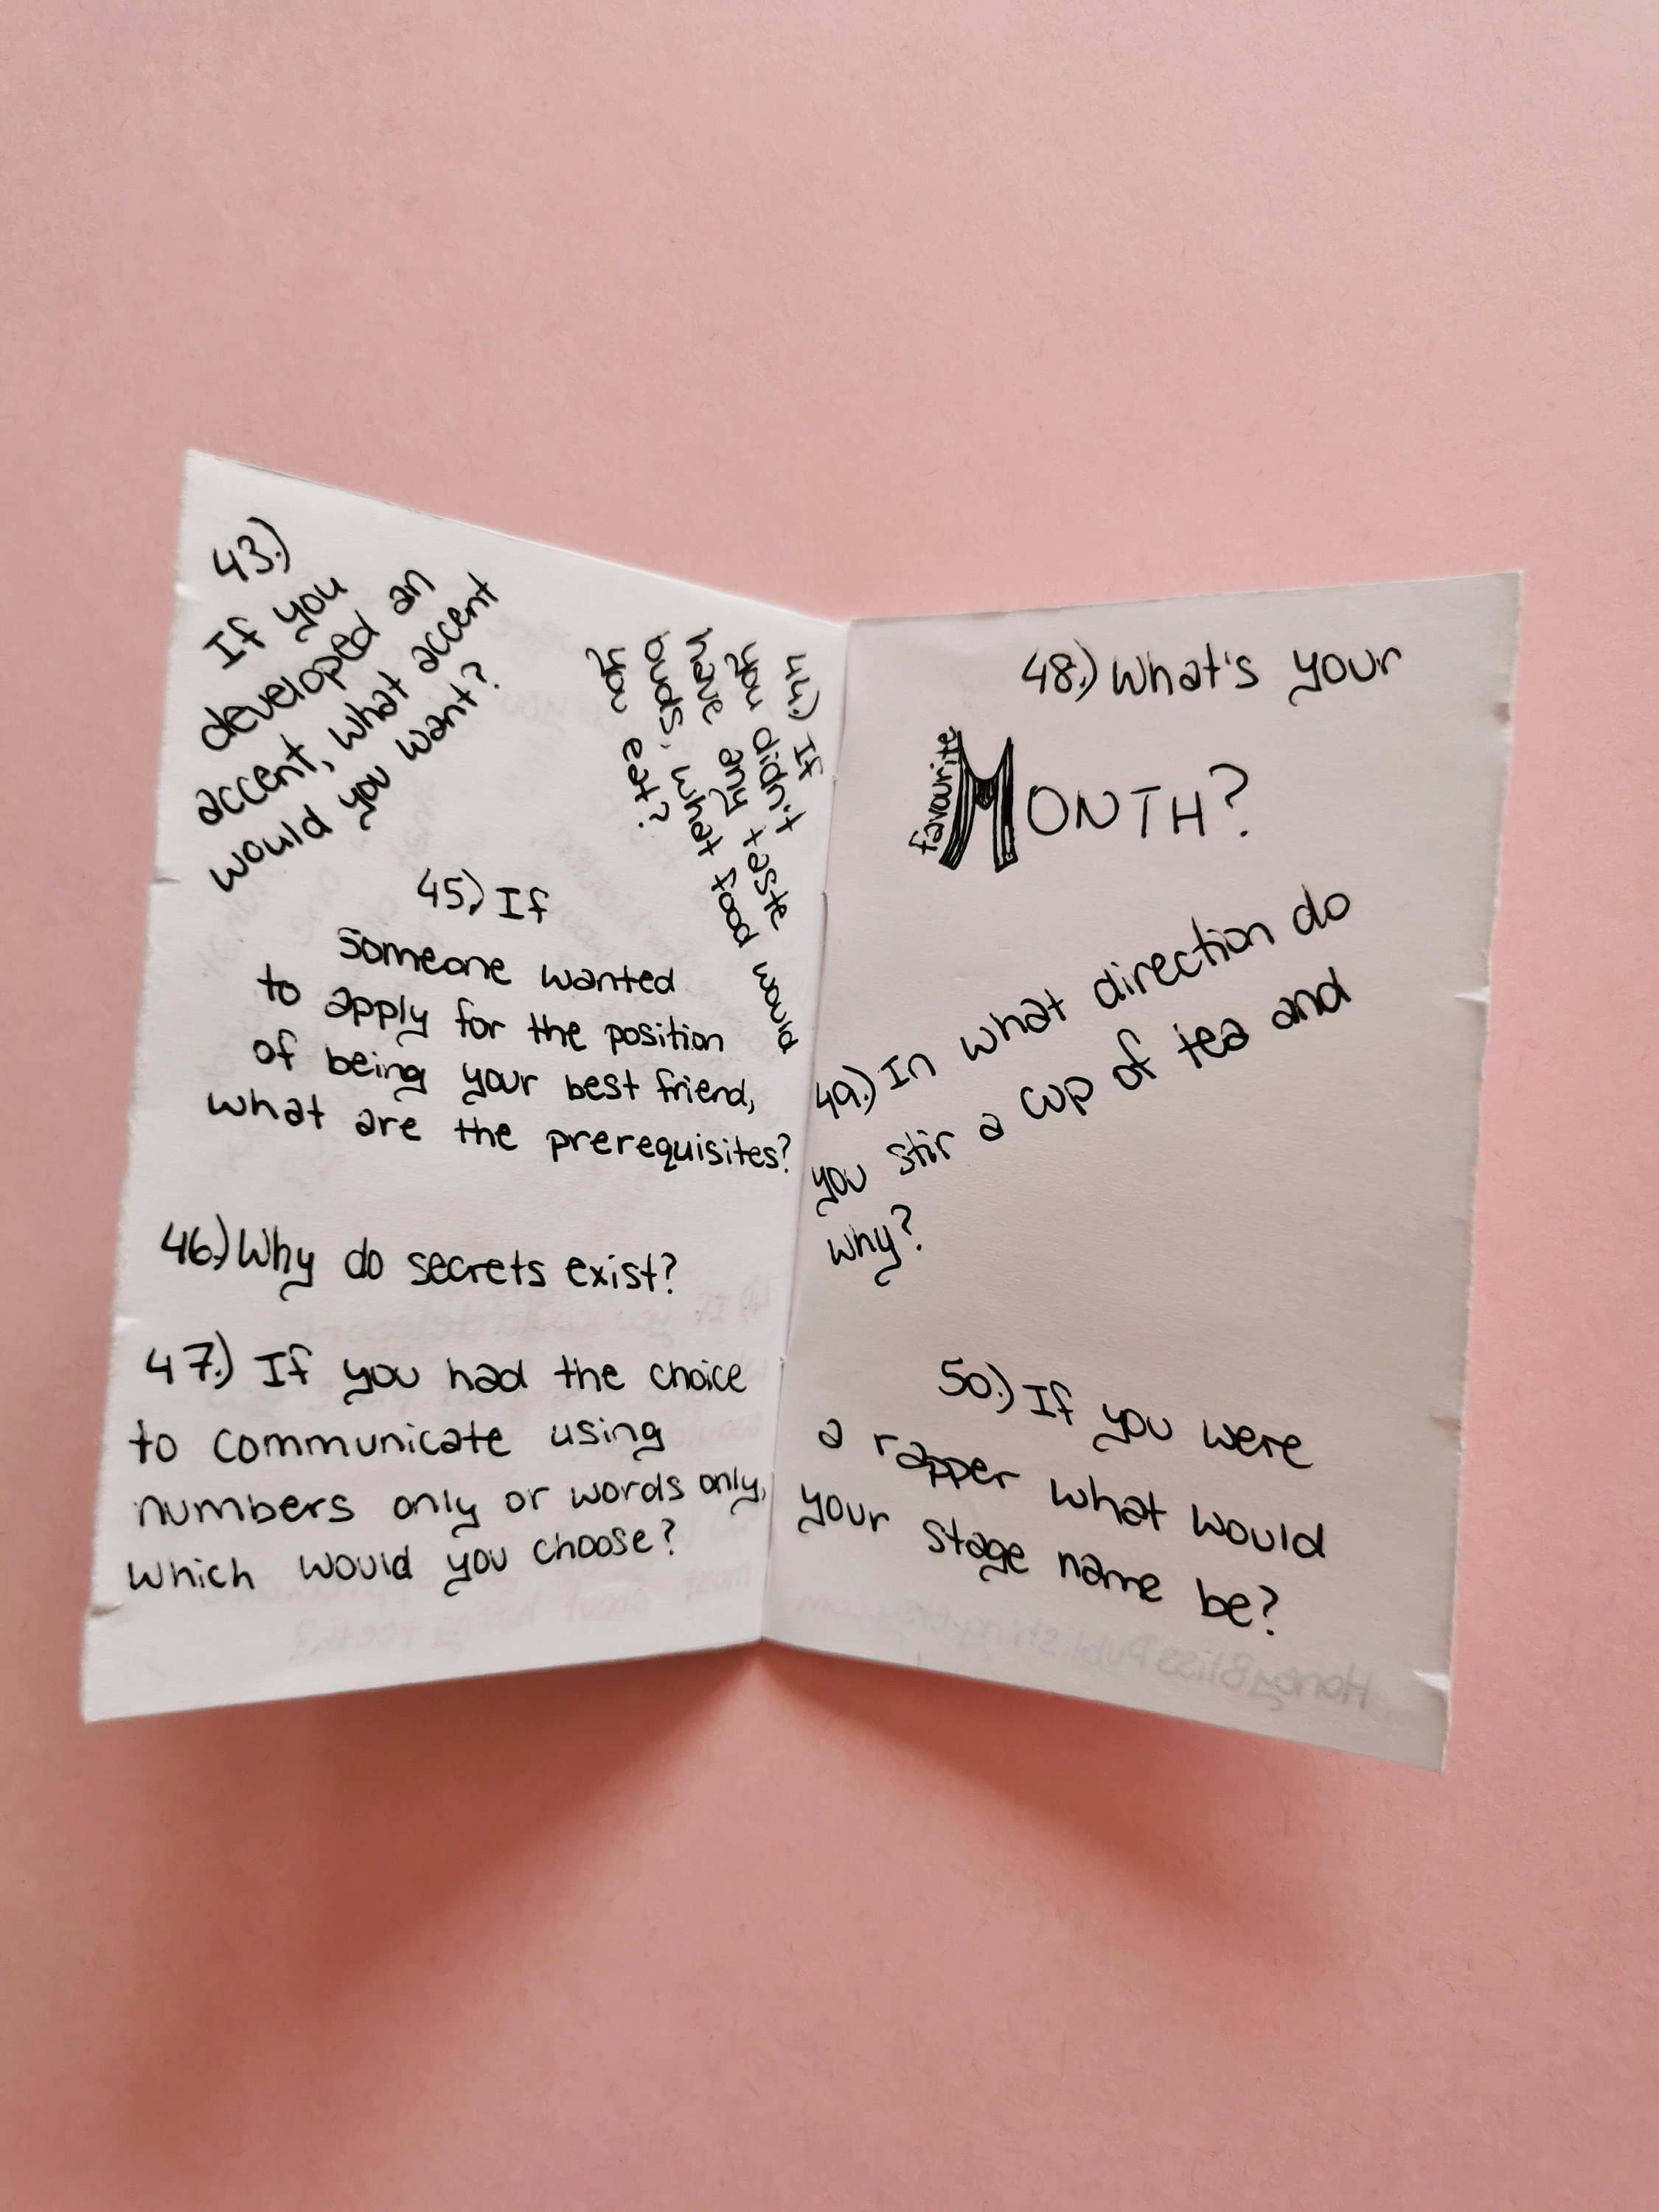 43.)
If you
developed an
accent, what accent
would you want?
44.) If
you didn't taste
have any
buds, what food would
you eat?
45.) If
someone wanted
to apply for the position
of being your best friend,
what are the prerequisites?
46.) Why do secrets exist?
47.) If you had the choice
to communicate using
numbers only or words only,
which would you choose?
48.) What's your
favourite
MONTH?
49.) In what direction do
you stir a cup of tea and
why?
50.) If you were
a rapper what would
your stage name be?
HoneyBlissPublishing.etsy.com